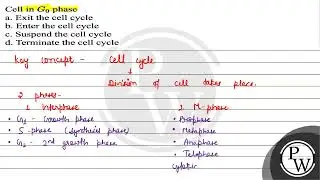 Cell in G₀ phase
a. Exit the cell cycle
b. Enter the cell cycle
c. Suspend the cell cycle
d. Terminate the cell cycle
Key concept - Cell cycle
↓
Division of cell takes place.
2 phases -
1 Interphase
• G₁ - Growth phase
• S - phase (Synthesis phase)
• G₂ - 2nd growth phase
2 M-phase
• Prophase
• Metaphase
• Anaphase
• Telophase
PW